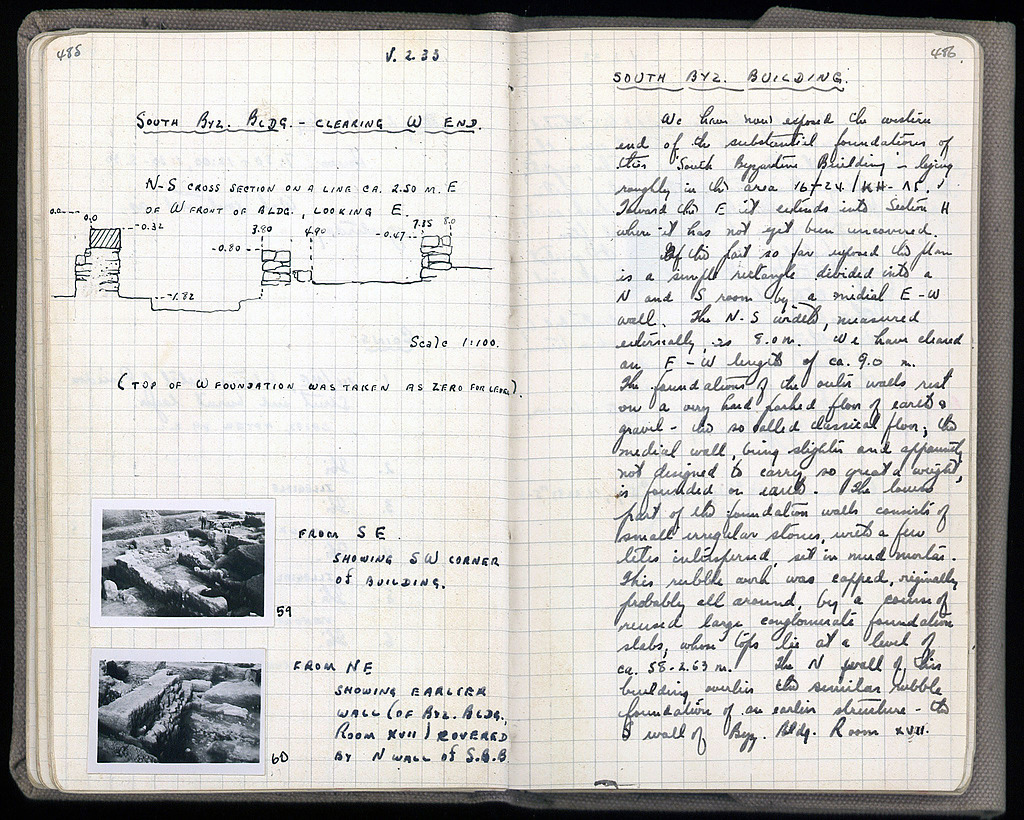 485
V.2.33
SOUTH BYZ. BLDG. - CLEARING W END.
N-S CROSS SECTION ON A LINE CA. 2.50 M. E
OF W FRONT OF BLDG., LOOKING E.
0.0
0.0
-0.32
-0.80
3.80
4.90
-0.47
7.35
8.0
-1.82
Scale 1:100.
(TOP OF W FOUNDATION WAS TAKEN AS ZERO FOR LEVEL).
FROM SE
SHOWING SW CORNER
OF BUILDING.
59
FROM NE
SHOWING EARLIER
WALL (OF BYZ. BLDG,
ROOM XVII) COVERED
BY N WALL OF S.B.B
60
486
SOUTH BYZ. BUILDING.
We have now exposed the western
end of the substantial foundations of
this South Byzantine Building - lying
roughly in the area 16-24 / KH-
Toward the E it extends into Section H
where it has not yet been uncovered.
Of the part so far exposed the plan
is a simple rectangle divided into a
N and S room by a medial E-W
wall. The N-S width, measured
externally, is 8.0 m. We have cleared
an E-W length of ca. 9.0 m.
The foundations of the outer walls rest
on a very hard packed floor of earth &
gravel - the so called classical floor; the
medial wall, being slighter and apparently
not designed to carry so great a weight,
is founded on earth. The lower
part of the foundation walls consists of
small irregular stones, with a few
tiles interspersed, set in mud mortar.
This rubble work was capped, originally
probably all around, by a course of
reused large conglomerate foundation
slabs, whose tops lie at a level of
ca. 58-2.63 m. The N wall of this
building overlies the similar rubble
foundation of an earlier structure - the
S wall of Byz. Bldg. Room XVII.